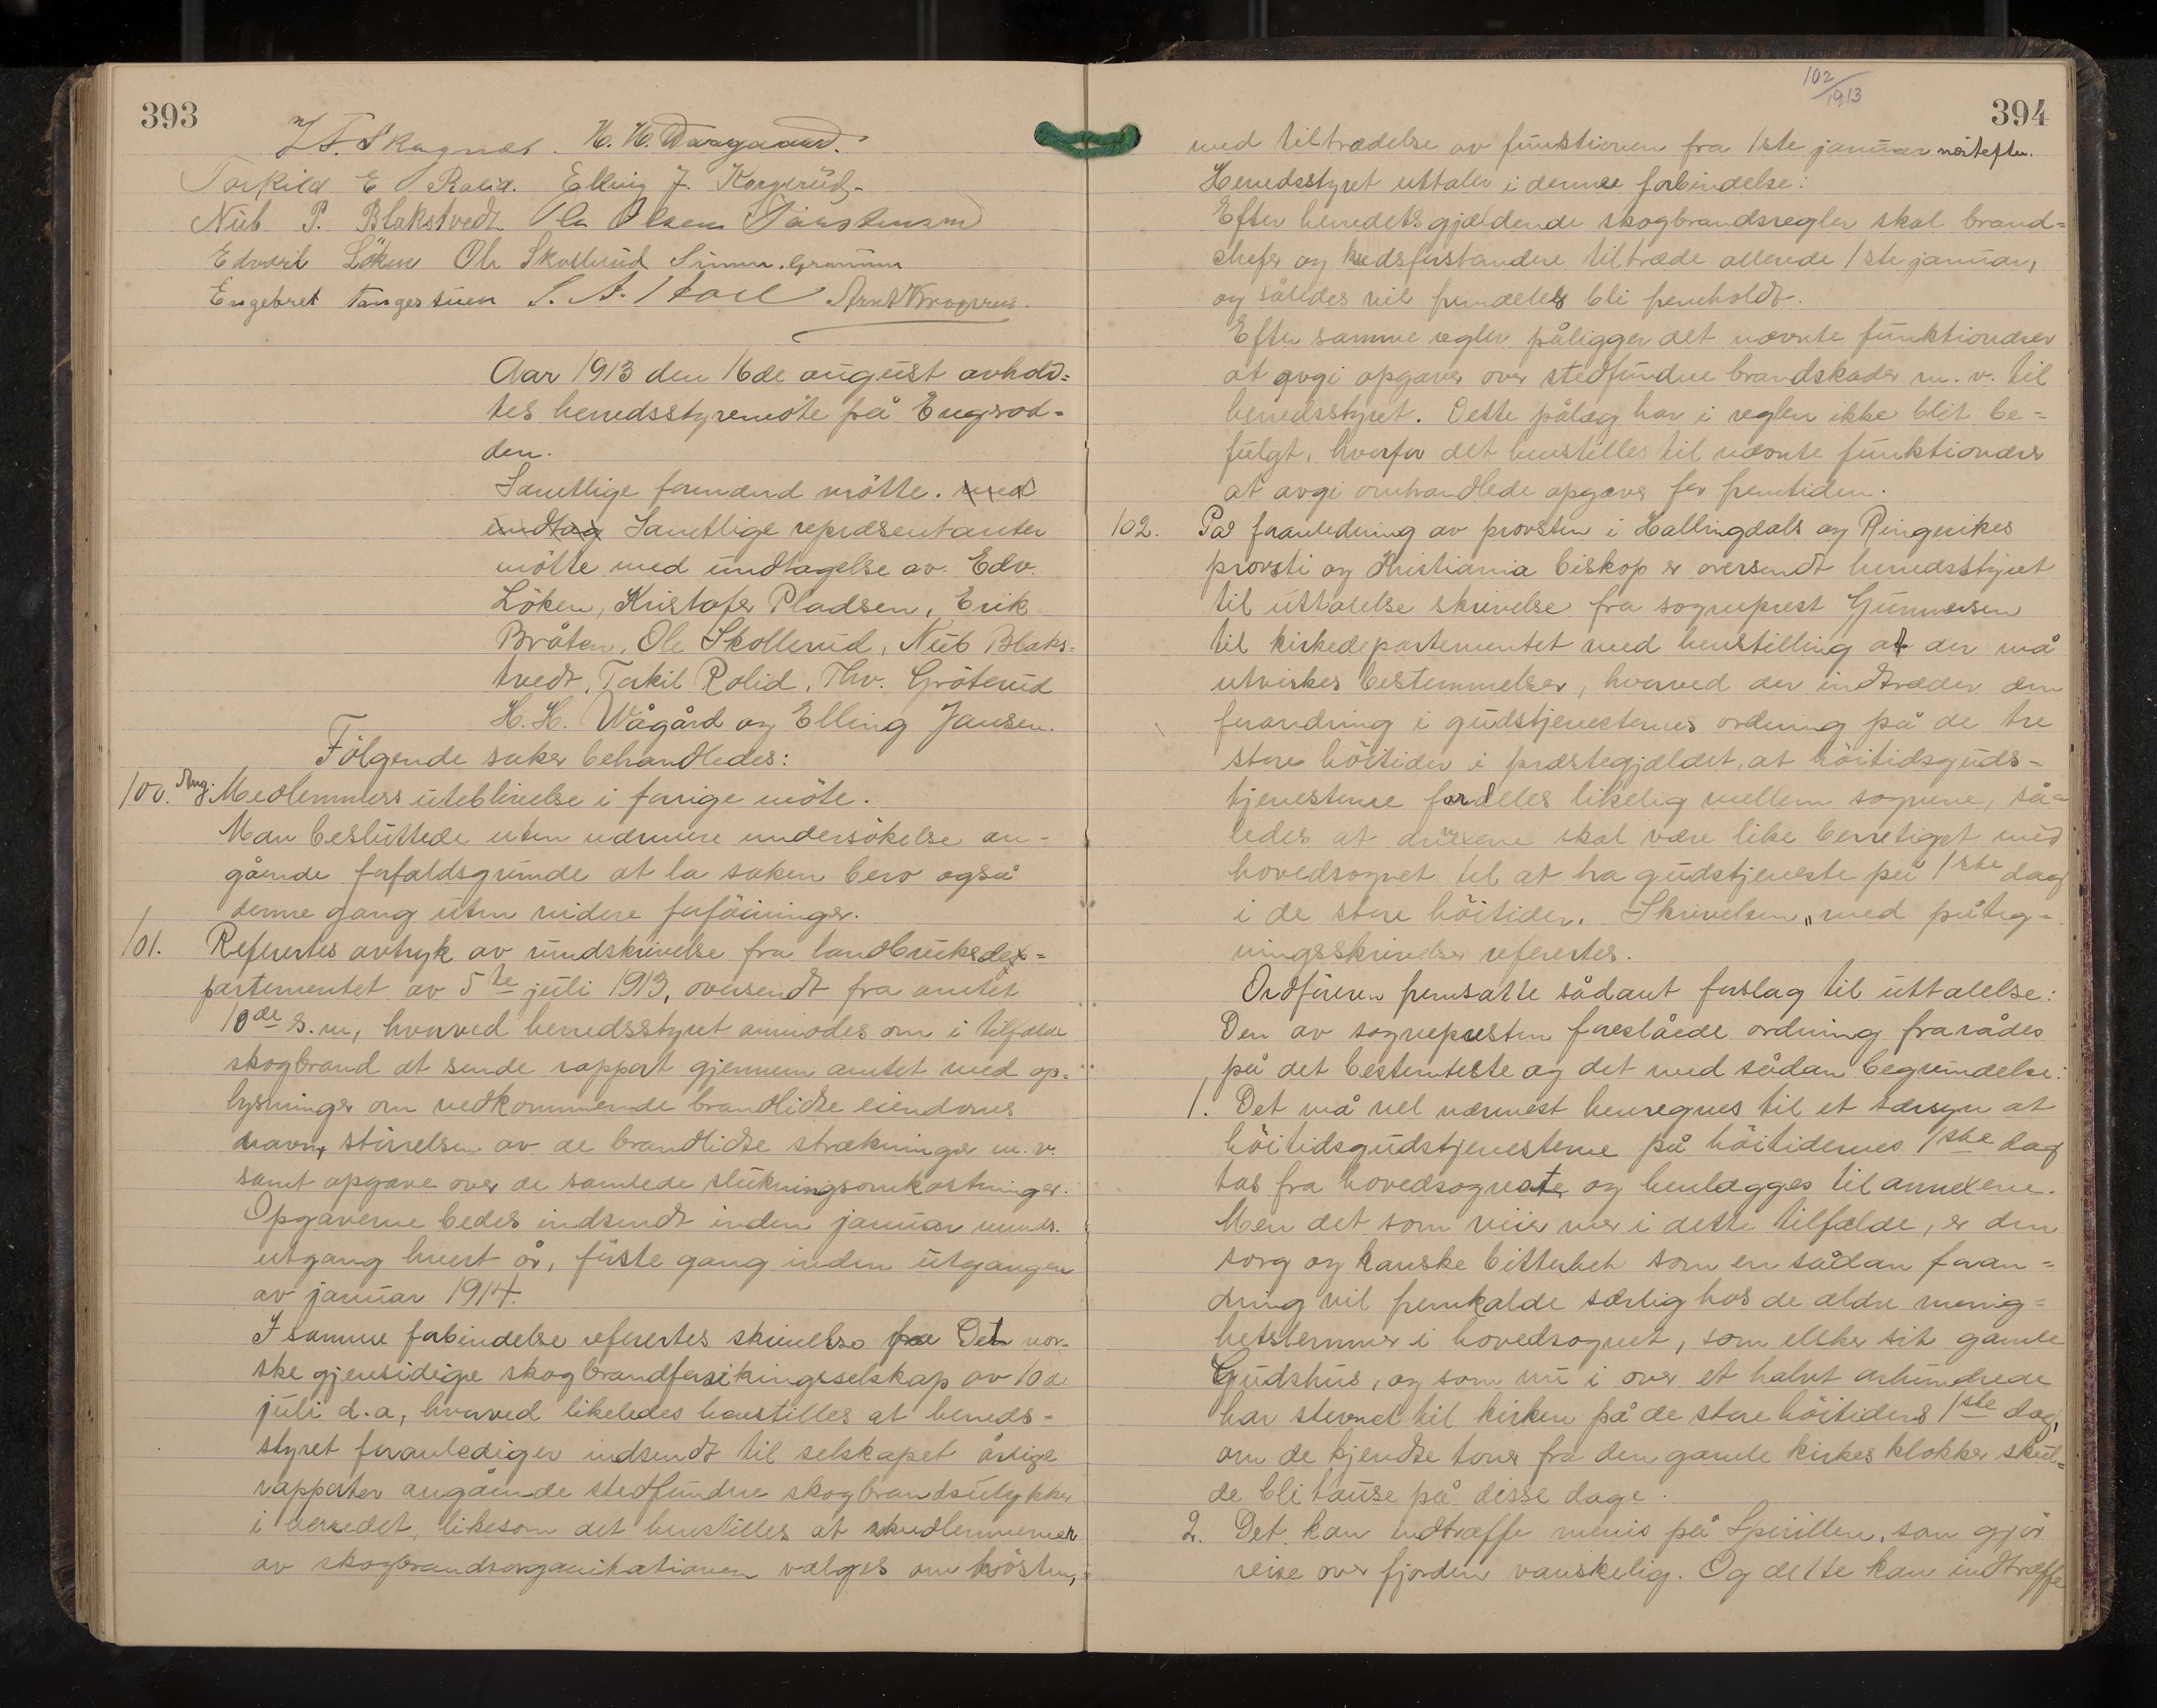 393
T. Skagnæs. H. H. Waagaard.
Torkild E Rolid. Elling J. Korgerud
Nub P. Blakstvedt Ole Olsen
Edvart Löken Ole Skollerud Simen Gramum
Engebret Tangestuen
Aar 1913 den 16de august avhold=
tes herredsstyremöte på Engrod=
den.
Samtlige formænd mötte. med
undtag Samtlige repræsentanter
mötte med undtagelse av Edv.
Löken, Kristofer Pladsen, Erik
Bråten, Ole Skollerud, Nub Blaks=
tvedt, Torkil Rolid, Thv. Gröterud
H. H. Wågård og Elling Jansen.
Fölgende saker behandledes:
100. Ang. Medlemmers uteblivelse i forrige möte.
Man besluttede uten nærmere undersökelse an-
gående forfaldsgrunde at la saken bero også
denne gang uten videre forföininger.
101. Refertes avtryk av rundskrivelse fra landbruksde=
partementet av 5te juli 1913, oversendt fra amtet
10de s.m, hvorved herredsstyret anmodes om i tilfælde
skogbrand at sende rapport gjennem amtet med op=
lysninger om vedkommende brandlidte eiendoms
navn, störrelsen av de brandlidte strækninger m.v.
samt opgave over de samlede slukningsomkostninger.
Opgaverne bedes indsendt inden januar måneds
utgang hvert år, förste gang inden utgangen
av januar 1914.
I samme forbindelse refertes skrivelse fra Det nor-
ske gjensidige skogbrandforsikringsselskap av 10de
juli d.a, hvorved likeledes henstilles at herreds-
styret foranlediger indsendt til selskapet årlige
rapporter angående stedfundne skogbrandsulykker
i herredet, likesom det henstilles at medlemmerne
av skogbrandsorganisationen vælges om hösten,
102/1913
394
med tiltrædelse av funktionen fra 1ste januar næstefter.
Herredsstyret uttaler i denne forbindelse:
Efter herredets gjældende skogbrandsregler skal brand=
chefer og kredsforstandere tiltræde allerede 1ste januar,
og således vil fremdeles bli fremholdt.
Efter samme regler påligger det nævnte funktionærer
at avgi opgaver over stedfundne brandskader m.v. til
herredsstyret. Dette pålæg har i reglen ikke blit be=
fulgt, hvorfor det henstilles til nævnte funktionærer
at avgi omhandlede opgaver for fremtiden.
102. På foranledning av provsten i Hallingdals og Ringerikes
provsti og Kristiania biskop er oversendt herredsstyret
til uttalelse skrivelse fra sogneprest Gunnersen
til kirkedepartementet med henstilling at der må
utvirkes bestemmelser, hvorved der indtræder en
forandring i gudstjenesternes ordning på de tre
store höitider i præstegjældet, at höitidsguds=
tjenesterne fordeles likelig mellem sognene, så=
ledes at annexene skal være like berettiget med
hovedsognet til at ha gudstjeneste på 1ste dag
i de store höitider. Skrivelsen med påteg=
ningsskrivelser refertes.
Ordföreren fremsatte sådant forslag til uttalelse:
Den av sognepresten foreslåede ordning frarådes
på det bestemteste og det med sådan begrundelse:
1. Det må vel nærmest henregnes til et særsyn at
höitidsgudstjenesterne på höitidernes 1ste dag
tas fra hovedsognet og henlægges til annexene.
Men det som veier mer i dette tilfælde, er den
sorg og kanske bitterhet som en sådan foran=
dring vil fremkalde særlig hos de ældre menig=
hetslemmer i hovedsognet, som elsker sit gamle
Gudshus, og som nu i over et halvt århundrede
har stevnet til kirken på de store höitiders 1ste dag,
om de kjendte toner fra den gamle kirkes klokker skul=
de bli tause på disse dage.
2. Det kan indtræffe menis på Spirillen, som gjör
reise over fjorden vanskelig. Og dette kan indtræffe